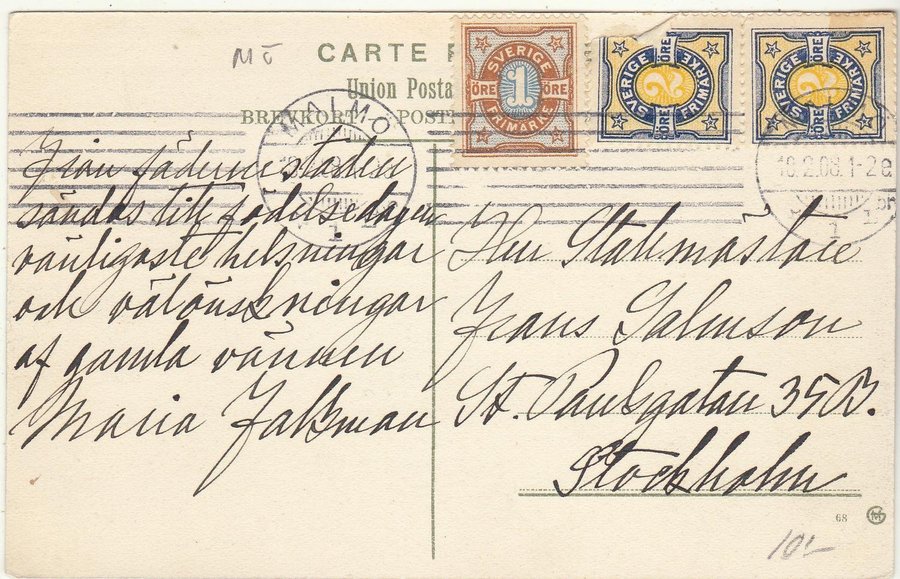 Mö
CARTE P
Union Posta
BREVKORT POST
SVERIGE
1
ÖRE ÖRE
FRIMÄRKE
SVERIGE
2
ÖRE
ÖRE
FRIMÄRKE
SVERIGE
2
ÖRE
ÖRE
FRIMÄRKE
MALMÖ
1
10.2.08.1-2e
1
Från fädernestaden
sändas till födelsedagen
vänligaste helsningar
och välönskningar
af gamla vännen
Maria Falkman
Herr Stallmästare
Frans Salmson
St. Paulsgatan 35B.
Stockholm
68
10-